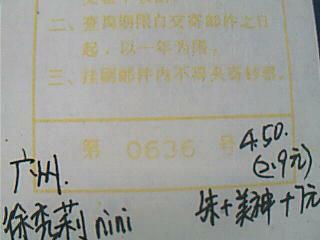 二、查询期限自交寄邮件之日
起，以一年为限。
三、挂刷邮件内不得夹寄钞票。
第 0636 号
4.50.
(2.9元)
广州.
徐秀莉 nini
朱+美神+7元